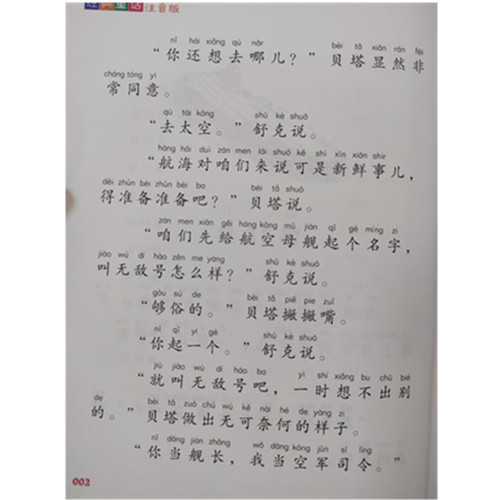 经典童话注音版
nǐ hái xiǎng qù nǎr bèi tǎ xiǎn rán fēi
“你还想去哪儿？”贝塔显然非
cháng tóng yì
常同意。
qù tài kōng shū kè shuō
“去太空。”舒克说。
háng hǎi duì zán men lái shuō kě shì xīn xiān shìr
“航海对咱们来说可是新鲜事儿，
děi zhǔn bèi zhǔn bèi ba bèi tǎ shuō
得准备准备吧？”贝塔说。
zán men xiān gěi háng kōng mǔ jiàn qǐ gè míng zi
“咱们先给航空母舰起个名字，
jiào wú dí hào zěn me yàng shū kè shuō
叫无敌号怎么样？”舒克说。
gòu sú de bèi tǎ piě piě zuǐ
“够俗的。”贝塔撇撇嘴。
nǐ qǐ yí gè shū kè shuō
“你起一个。”舒克说。
jiù jiào wú dí hào ba yì shí xiǎng bu chū bié
“就叫无敌号吧，一时想不出别
de bèi tǎ zuò chū wú kě nài hé de yàng zi
的。”贝塔做出无可奈何的样子。
nǐ dāng jiàn zhǎng wǒ dāng kōng jūn sī lìng
“你当舰长，我当空军司令。”
002